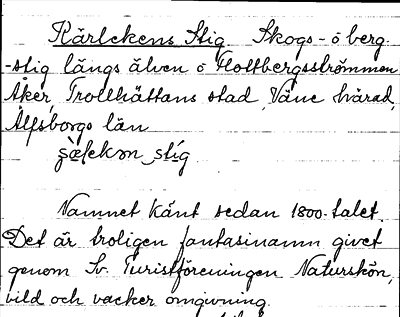 Kärlekens Stig Skogs- o berg-
-stig längs älven o Holtbergsströmmen
Åker, Trollhättans stad, Väne härad,
Älfsborgs län
stíg
Namnet känt sedan 1800-talet.
Det är troligen fantasinamn givet
genom Sv. Turistföreningen Naturskön,
vild och vacker omgivning.